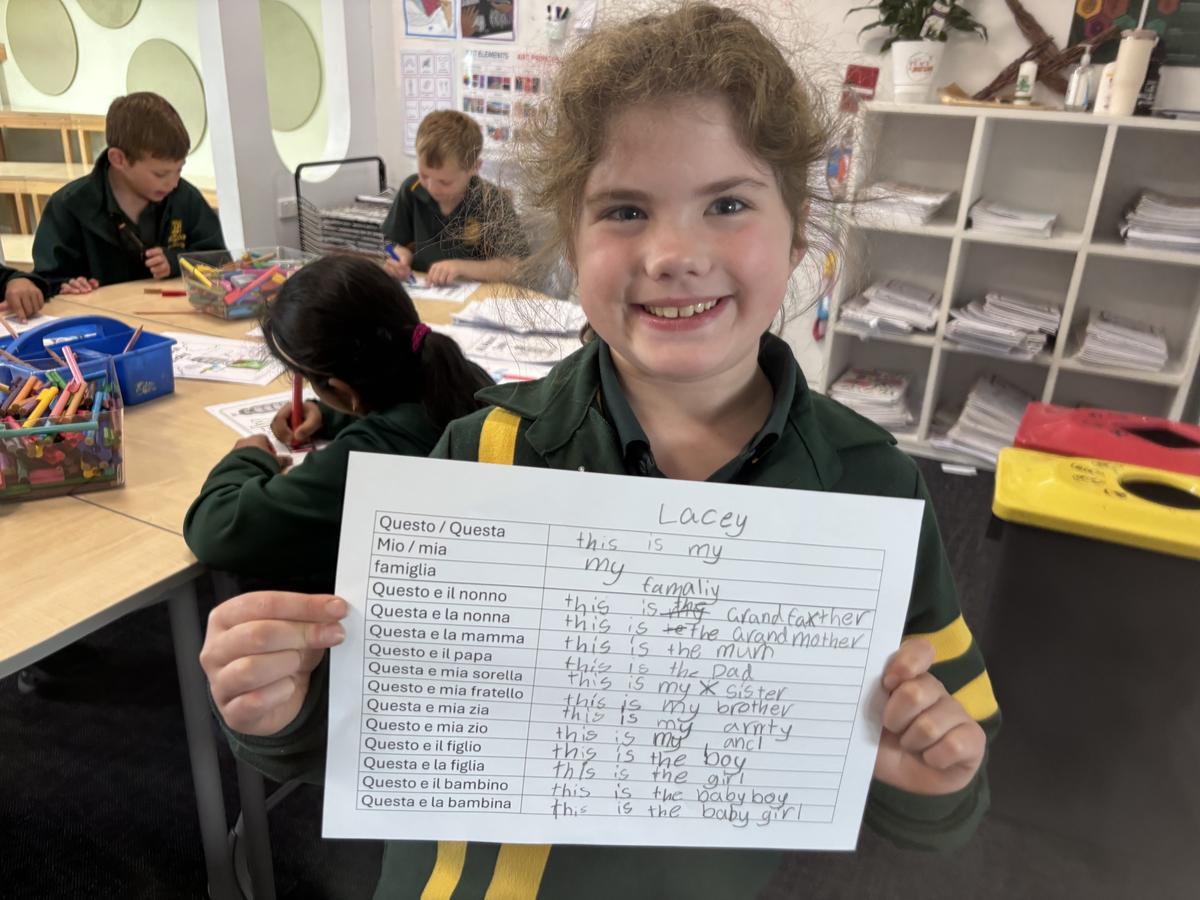 ART ELEMENTS
Lacey
Questo / Questa this is my
Mio / mia my
famiglia famaliy
Questo e il nonno this is the Grandfaxther
Questa e la nonna this is te the Grandmother
Questa e la mamma this is the mum
Questo e il papa this is the Dad
Questa e mia sorella this is my x sister
Questo e mia fratello this is my brother
Questa e mia zia this is my arnty
Questo e mio zio this is my ancl
Questo e il figlio this is the boy
Questa e la figlia this is the girl
Questo e il bambino this is the baby boy
Questa e la bambina this is the baby girl